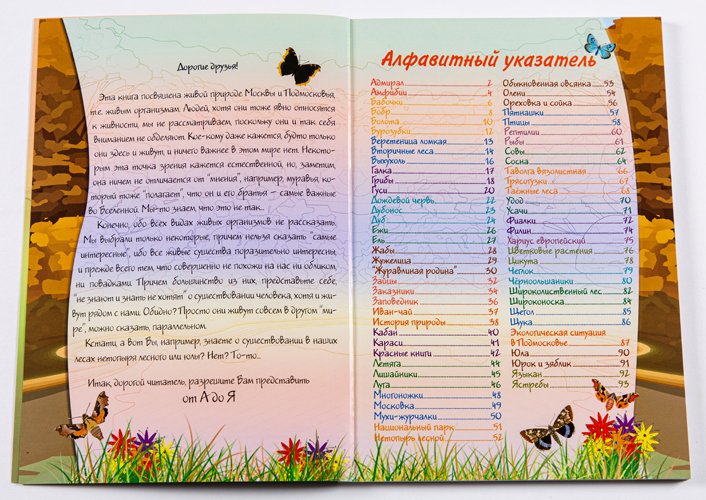 Дорогие друзья!
Эта книга посвящена живой природе Москвы и Подмосковья,
т.е. живым организмам. Людей, хотя они тоже явно относятся
к живности, мы не рассматриваем, поскольку они и так себя
вниманием не обделяют. Кое-кому даже кажется, будто только
они здесь и живут, и ничего важнее в этом мире нет. Некото-
рым эта точка зрения кажется естественной, но, заметим,
она ничем не отличается от "мнения", например, муравья, ко-
торый тоже "полагает", что он и его братья – самые важные
во Вселенной. Мы-то знаем, что это не так...
Конечно, обо всех видах живых организмов не рассказать.
Мы выбрали только некоторые, причем нельзя сказать "самые
интересные", ибо все живые существа поразительно интересны,
и прежде всего тем, что совершенно не похожи на нас ни обликом,
ни повадками. Причем большинство из них, представьте себе,
"не знают и знать не хотят" о существовании человека, хотя и жи-
вут рядом с нами. Обидно? Просто они живут совсем в другом "ми-
ре", можно сказать, параллельном.
Кстати, а вот Вы, например, знаете о существовании в наших
лесах нетопыря лесного или юлы? Нет? То-то...
Итак, дорогой читатель, разрешите Вам представить
от А до Я
Алфавитный указатель
Адмирал 2
Амфибии 4
Бабочки 6
Бобр 8
Болота 10
Бурозубки 12
Веретеница ломкая 13
Вторичные леса 14
Выхухоль 16
Галка 17
Грибы 18
Гуси 20
Дождевой червь 22
Дубонос 23
Дуб 24
Ежи 26
Ель 27
Жабы 28
Жужелица 29
"Журавлиная родина" 30
Зайцы 32
Заказники 34
Заповедник 36
Иван-чай 37
История природы 38
Кабан 40
Караси 41
Красные книги 42
Летяга 44
Лишайники 45
Луга 46
Многоножки 48
Московка 49
Мухи-журчалки 50
Национальный парк 51
Нетопырь лесной 52
Обыкновенная овсянка 53
Олени 54
Ореховка и сойка 56
Пятнашки 57
Птицы 58
Рептилии 60
Рыбы 61
Совы 62
Сосна 64
Таволга вязолистная 66
Трясогузки 67
Таежные леса 68
Удод 70
Усачи 71
Фиалки 72
Филин 74
Хариус европейский 75
Цветковые растения 76
Цикута 78
Чеглок 79
Черноольшаники 80
Широколиственный лес 82
Широконоска 84
Щегол 85
Щука 86
Экологическая ситуация
в Подмосковье 87
Юла 90
Юрок и зяблик 91
Языкан 92
Ястребы 93